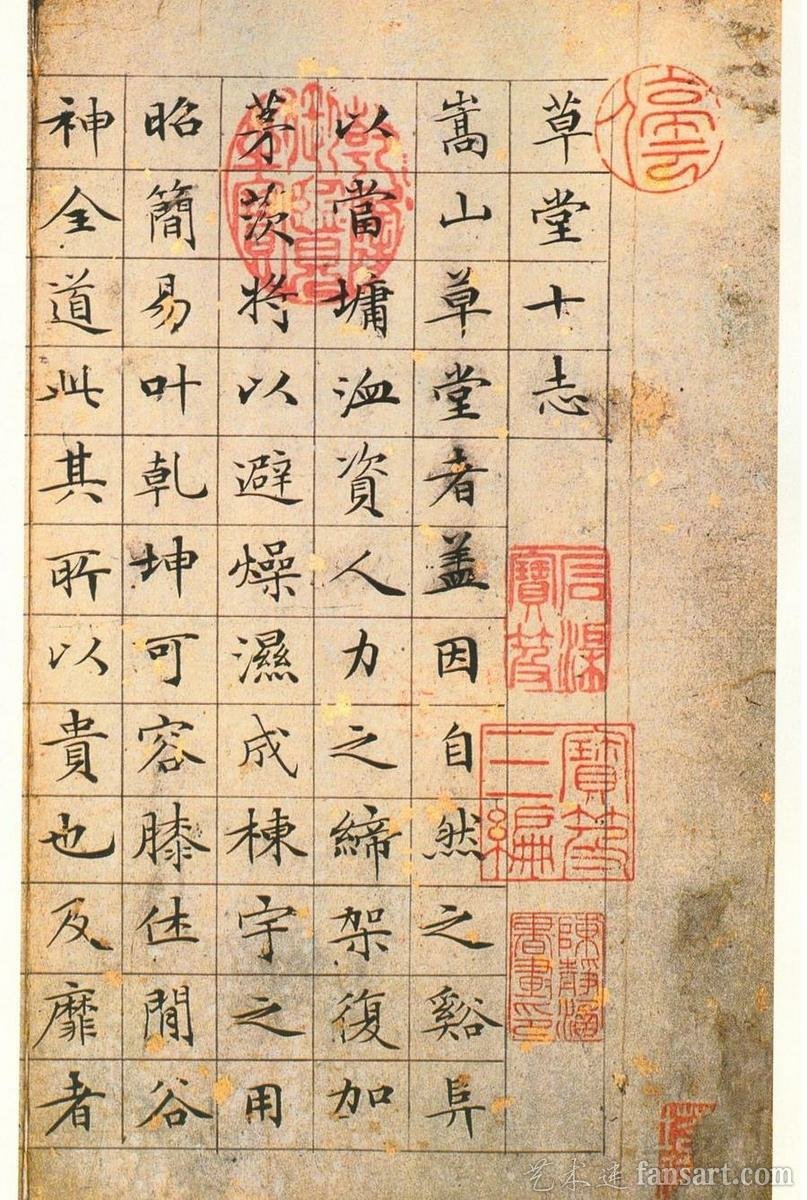 草堂十志
嵩山草堂者蓋因自然之谿阜
以當墉洫資人力之締架復加
茅茨將以避燥濕成棟宇之用
昭簡易叶乾坤可容膝休閒谷
神全道此其所以貴也及靡者
寶笈三編
陳静涵書畫印
艺术迷fansart.com